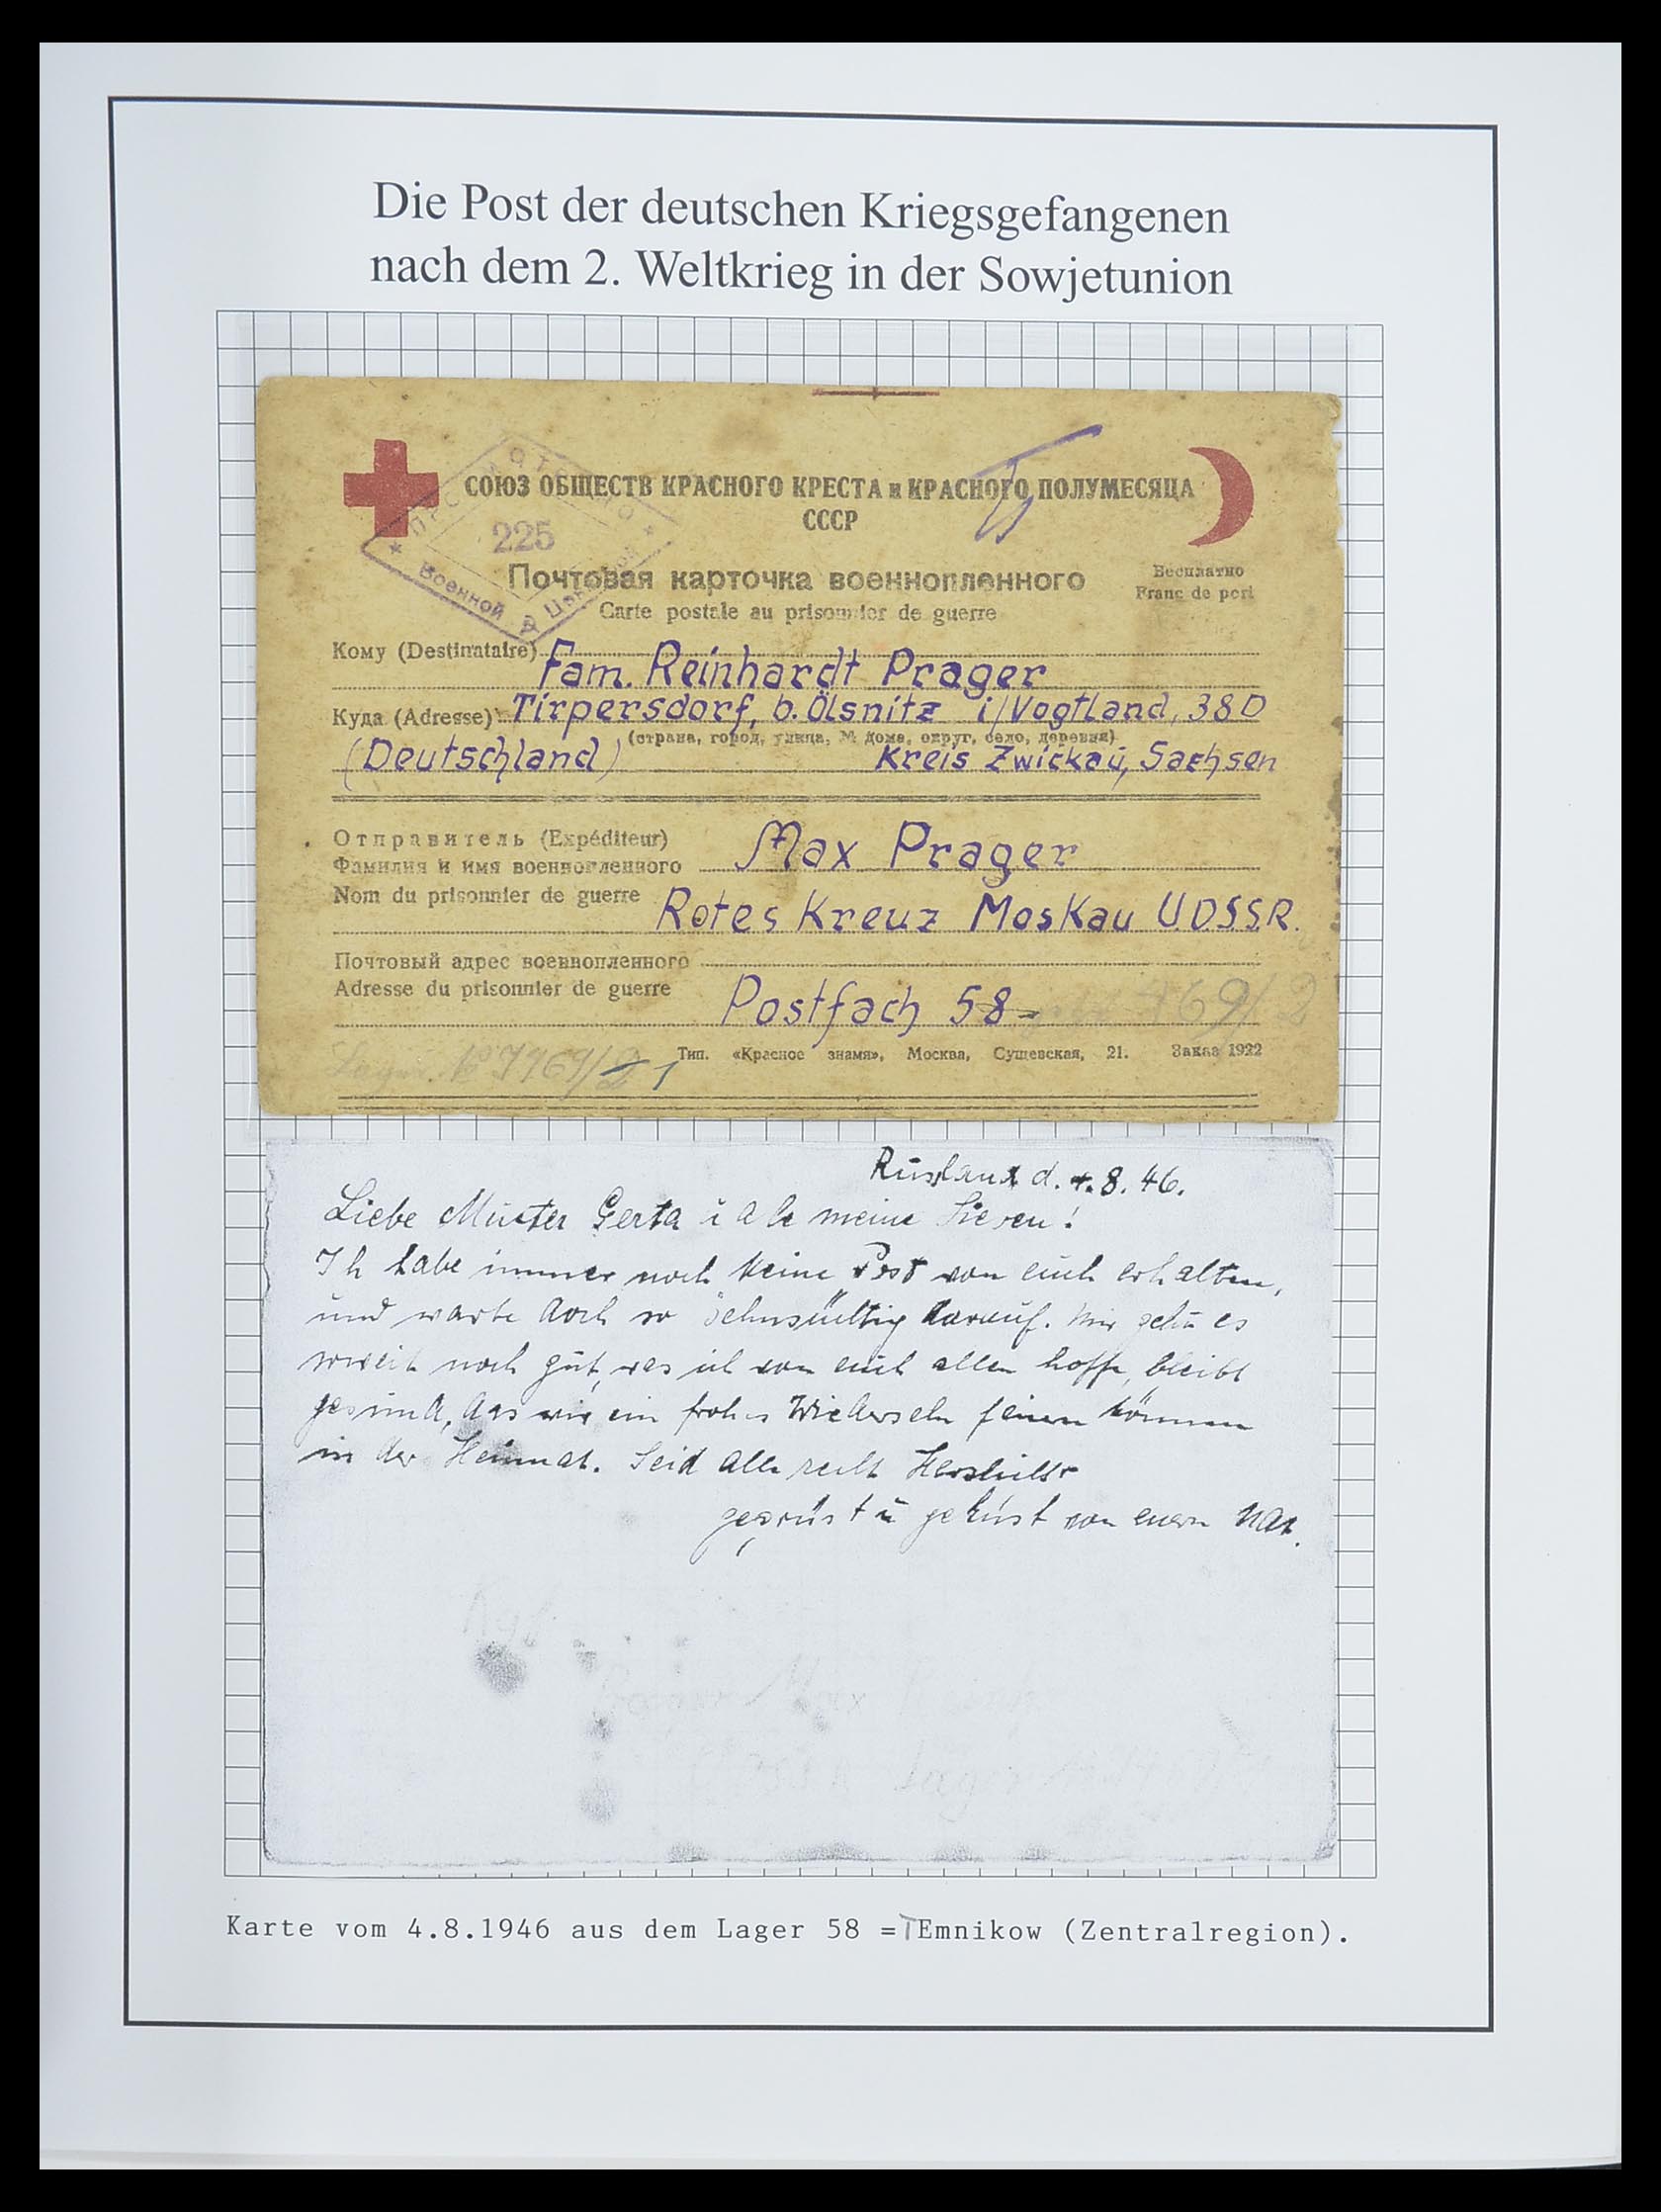 Die Post der deutschen Kriegsgefangenen
nach dem 2. Weltkrieg in der Sowjetunion
СОЮЗ ОБЩЕСТВ КРАСНОГО КРЕСТА и КРАСНОГО ПОЛУМЕСЯЦА
СССР
225
Военной
Почтовая карточка военнопленного
Бесплатно
Carte postale au prisonnier de guerre
Franc de port
Кому (Destinataire) Fam. Reinhardt Prager
Куда (Adresse) Tirpersdorf, b. Ölsnitz i/Vogtland, 38D
(страна, город, улица, № дома, округ, село, деревня)
(Deutschland) Kreis Zwickaŭ, Sachsen
Отправитель (Expéditeur)
Фамилия и имя военнопленного Max Prager
Nom du prisonnier de guerre Rotes Kreuz Moskau U.D.S.S.R.
Почтовый адрес военнопленного
Adresse du prisonnier de guerre Postfach 58
Тип. «Красное знамя», Москва, Сущевская, 21. Заказ 1922
Rŭsland d. 4.8.46.
Liebe Mŭtter Gerta ŭ ale meine Lieben!
Ich habe immer noch keine Post von eŭch erhalten,
ŭnd warte doch so sehnsŭchtig daraŭf. Mir geht es
soweit noch gŭt, was ich von eŭch allen hoffe, bleibt
gesŭnd, das wir ein frohes Wiedersehn feiern können
in der Heimat. Seid alle recht Herzlichst
gegrüst ŭ geküst von euern Max.
Karte vom 4.8.1946 aus dem Lager 58 = TEmnikow (Zentralregion).